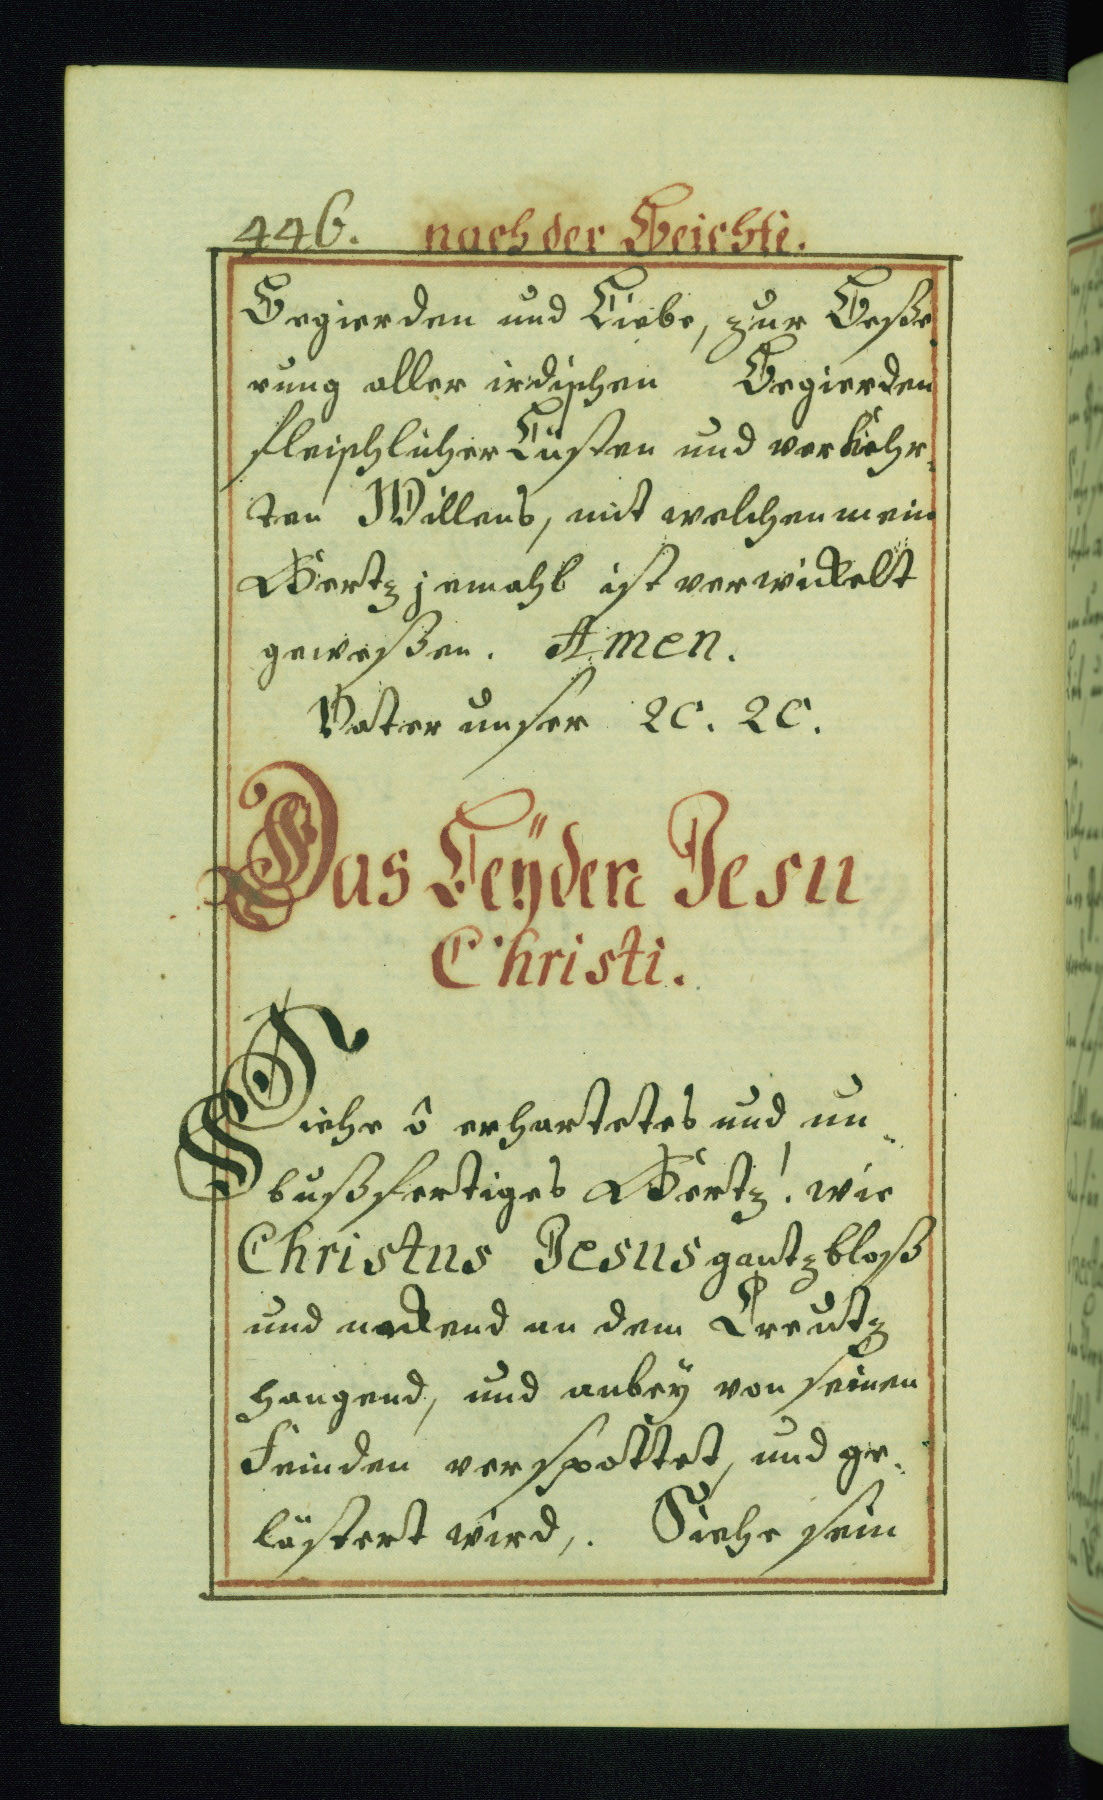 446. nach der Beichte.
Begierden und Liebe, zur Beße,
rung aller irdischen Begierden
fleischlicher Lüsten und verkehr,
ten Willens, mit welchen mein
Hertz jemahls ist verwickelt
geweßen. Amen.
Vater unser 2c. 2c.
Das Leÿden Jesu
Christi.
Siehe ô erhartetes und un,
bußfertiges Hertz! wie
Christus Jesus gantz bloß
und nackend an dem Creutz
hangend, und anbeÿ von seinen
Feinden verspottet, und ge,
lästert wird,. Siehe sein